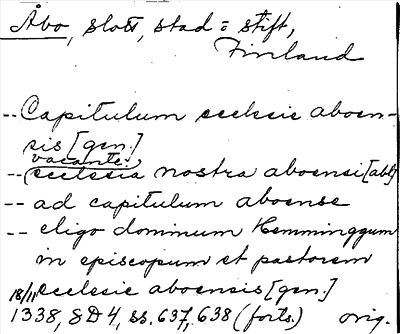 Åbo, slott, stad o stift,
Finland
-- Capitulum ecclesie aboen-
sis [gen.]
vacante:
-- ecclesia nostra aboensi [abl]
-- ad capitulum aboense
-- eligo dominum Hemminggum
in episcopum et pastorem
18/11 ecclesie aboensis [gen.]
1338, SD4, ss. 637, 638 (forts.) orig.